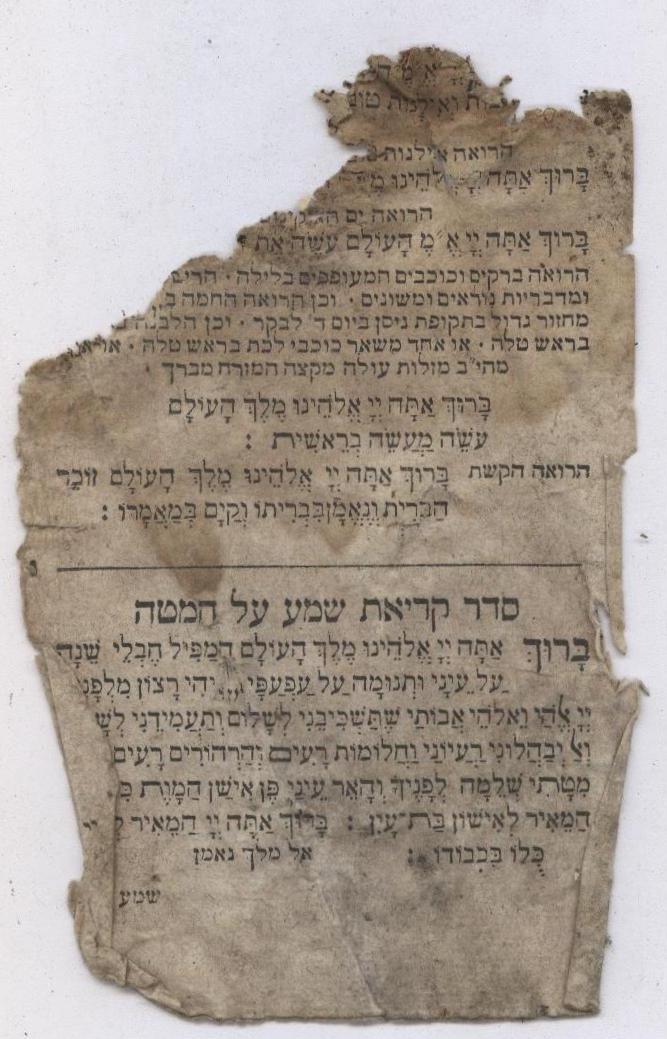 ואילנות טוב
הרואה אילנות
בָּרוּךְ אַתָּה יְיָ אֱלֹהֵינוּ
הרואה ים
בָּרוּךְ אַתָּה יְיָ אֱ״מֶ הָעוֹלָם עֹשֶׂה אֶת
הרואה ברקים וכוכבים המעופפים בלילה · הרים
ומדבריות נוראים ומשונים · וכן הרואה החמה
מחזור גדול בתקופת ניסן ביום ד׳ לבקר · וכן הלבנה
בראש טלה · או אחד משאר כוכבי לכת בראש טלה ·
מהי״ב מזלות עולה מקצה המזרח מברך ·
בָּרוּךְ אַתָּה יְיָ אֱלֹהֵינוּ מֶלֶךְ הָעוֹלָם
עֹשֶׂה מַעֲשֵׂה בְרֵאשִׁית :
הרואה הקשת בָּרוּךְ אַתָּה יְיָ אֱלֹהֵינוּ מֶלֶךְ הָעוֹלָם זוֹכֵר
הַבְּרִית וְנֶאֱמָן בִּבְרִיתוֹ וְקַיָּם בְּמַאֲמָרוֹ :
סדר קריאת שמע על המטה
בָּרוּךְ אַתָּה יְיָ אֱלֹהֵינוּ מֶלֶךְ הָעוֹלָם הַמַּפִּיל חֶבְלֵי שֵׁנָה
עַל עֵינָי וּתְנוּמָה עַל עַפְעַפָּי יְהִי רָצוֹן מִלְּפָנֶ
יְיָ אֱלֹהַי וֵאלֹהֵי אֲבוֹתַי שֶׁתַּשְׁכִּיבֵנִי לְשָׁלוֹם וְתַעֲמִידֵנִי לְשָׁ
וְאַל יְבַהֲלוּנִי רַעְיוֹנַי וַחֲלוֹמוֹת רָעִים וְהַרְהוֹרִים רָעִים
מִטָּתִי שְׁלֵמָה לְפָנֶיךָ וְהָאֵר עֵינַי פֶּן אִישַׁן הַמָּוֶת
הַמֵּאִיר לְאִישׁוֹן בַּת־עָיִן : בָּרוּךְ אַתָּה יְיָ הַמֵּאִיר
כֻּלּוֹ בִּכְבוֹדוֹ : אל מלך נאמן
שמע